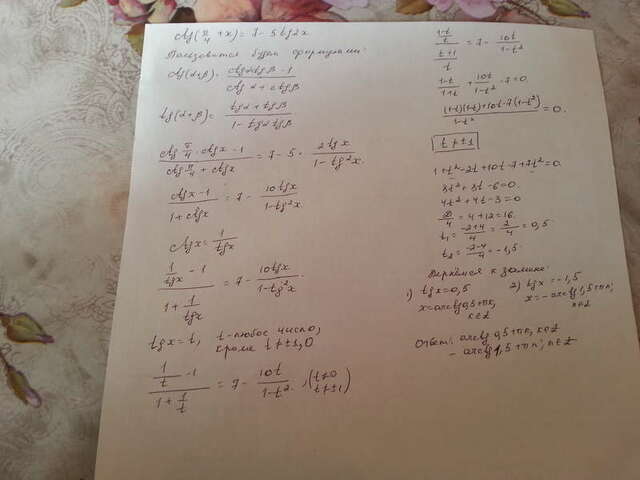 ctg(π/4 + x) = 7 - 5tg2x
Пользоваться будем формулами:
ctg(α+β) = (ctgαctgβ - 1)/(ctgα + ctgβ)
tg(α+β) = (tgα + tgβ)/(1 - tgαtgβ)
(ctg π/4 · ctgx - 1)/(ctg π/4 + ctgx) = 7 - 5 · 2tgx/(1 - tg²x)
(ctgx - 1)/(1 + ctgx) = 7 - 10tgx/(1 - tg²x)
ctgx = 1/tgx
(1/tgx - 1)/(1 + 1/tgx) = 7 - 10tgx/(1 - tg²x)
tgx = t, t - любое число,
кроме t ≠ ±1, 0
(1/t - 1)/(1 + 1/t) = 7 - 10t/(1 - t²), (t ≠ 0
t ≠ ±1)
((1-t)/t)/((t+1)/t) = 7 - 10t/(1-t²)
(1-t)/(1+t) + 10t/(1-t²) - 7 = 0
((1-t)(1-t) + 10t - 7(1-t²))/(1-t²) = 0.
t ≠ ±1
1 + t² - 2t + 10t - 7 + 7t² = 0.
8t² + 8t - 6 = 0.
4t² + 4t - 3 = 0
D/4 = 4 + 12 = 16.
t₁ = (-2+4)/4 = 2/4 = 0,5
t₂ = (-2-4)/4 = -1,5.
Вернемся к замене:
1) tgx = 0,5
x = arctg0,5 + πn,
n∈Z
2) tgx = -1,5
x = -arctg1,5 + πn,
n∈Z
Ответ: arctg 0,5 + πn, n∈Z
- arctg 1,5 + πn; n∈Z